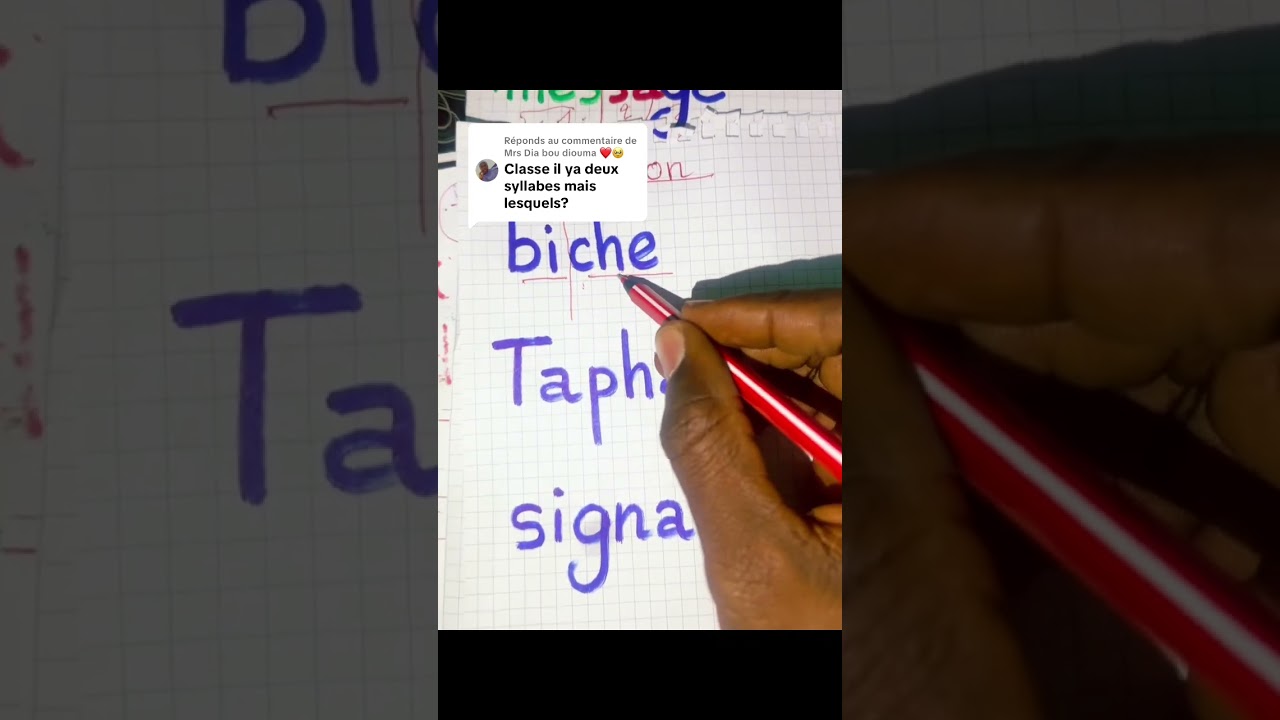 message
Réponds au commentaire de
Mrs Dia bou diouma ❤️🥹
Classe il ya deux
syllabes mais
lesquels?
on
biche
Taph
signa